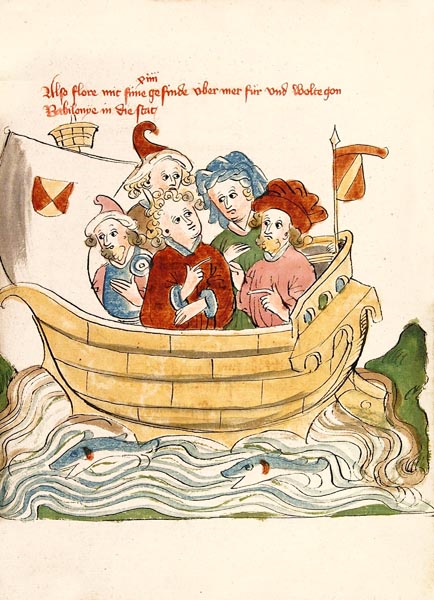 xiiij
Also flore mit sime gesinde vber mer für vnd wolte gon
Babilonye in die stat